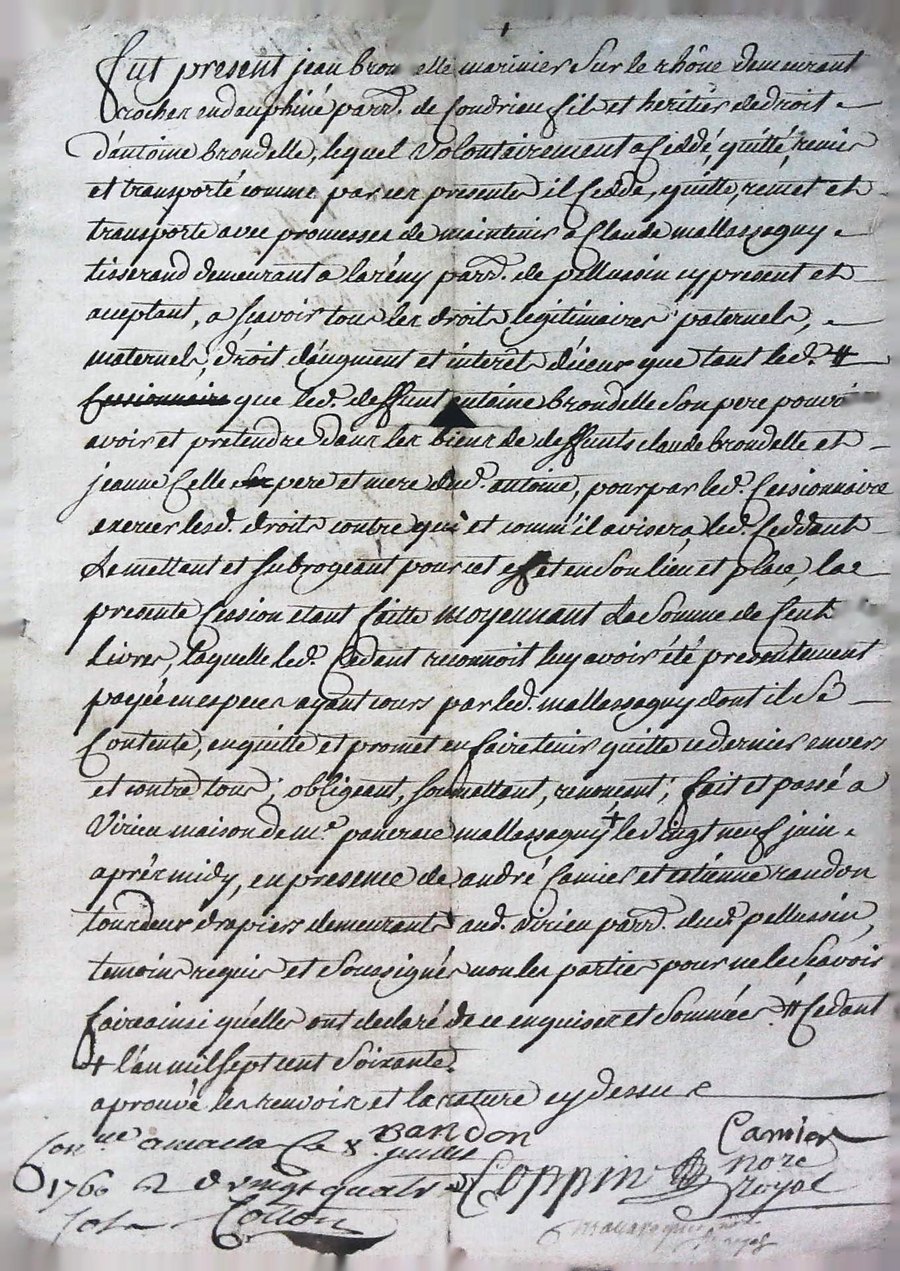 fut present jean brondelle marinier sur le rhône demeurant
rocher en dauphiné parr. de Condrieu fil et heritier de droit
d'antoine brondelle, lequel volontairement a ceddé, quitté, remis
et transporté comme par ces presentes il cedde, quitte, remet et
transporte avec promesses de maintenir a Claude mallassagny
tisserand demeurant a larény parr. de pellussin cy present et
aceptant, a scavoir tous les droits légitimaires paternels,
maternels, droit d'augment et interêt d'iceux que tant led. #
Cessionnaire que led. deffunt antoine brondelle son pere pouvoi
avoir et pretendre dans les biens de deffunts claude brondelle et
jeanne Celle pere et mere dud. antoine, pour par led. Cessionnaire
exercer lesd. droits contre qui et comm'il avisera, led. Ceddant
Le mettant et subrogeant pour cet effet en son lieu et place, la
presente Cession etant faitte moyennant La somme de Cent
Livres, laquelle led. Cedant reconnoit luy avoir été presentement
payée en especes ayant cours par led. mallassagny dont il se
Contente, en quitte et promet en faire tenir quitte ce dernier envers
et contre tous; obligeant, soumettant, renoncant; fait et passé a
Virieu maison de me pancrace mallassagny + le vingt neuf juin
aprés midy, en presence de andré Camier et etienne randon
tondeur drapiers demeurants aud. Virieu parr. dud. pellussin,
temoins requis et soussignés non les parties pour ne le scavoir
faire ainsi qu'elles ont declaré de ce enquises et sommées. # Cedant
+ l'an mil sept cent soixante.
aprouvé les renvois et la rature cy dessus
Randon Camier
Con.lle a Ce 8 juillet
1760 R d vingt quatre
sols Collon
Coppin nore
royal